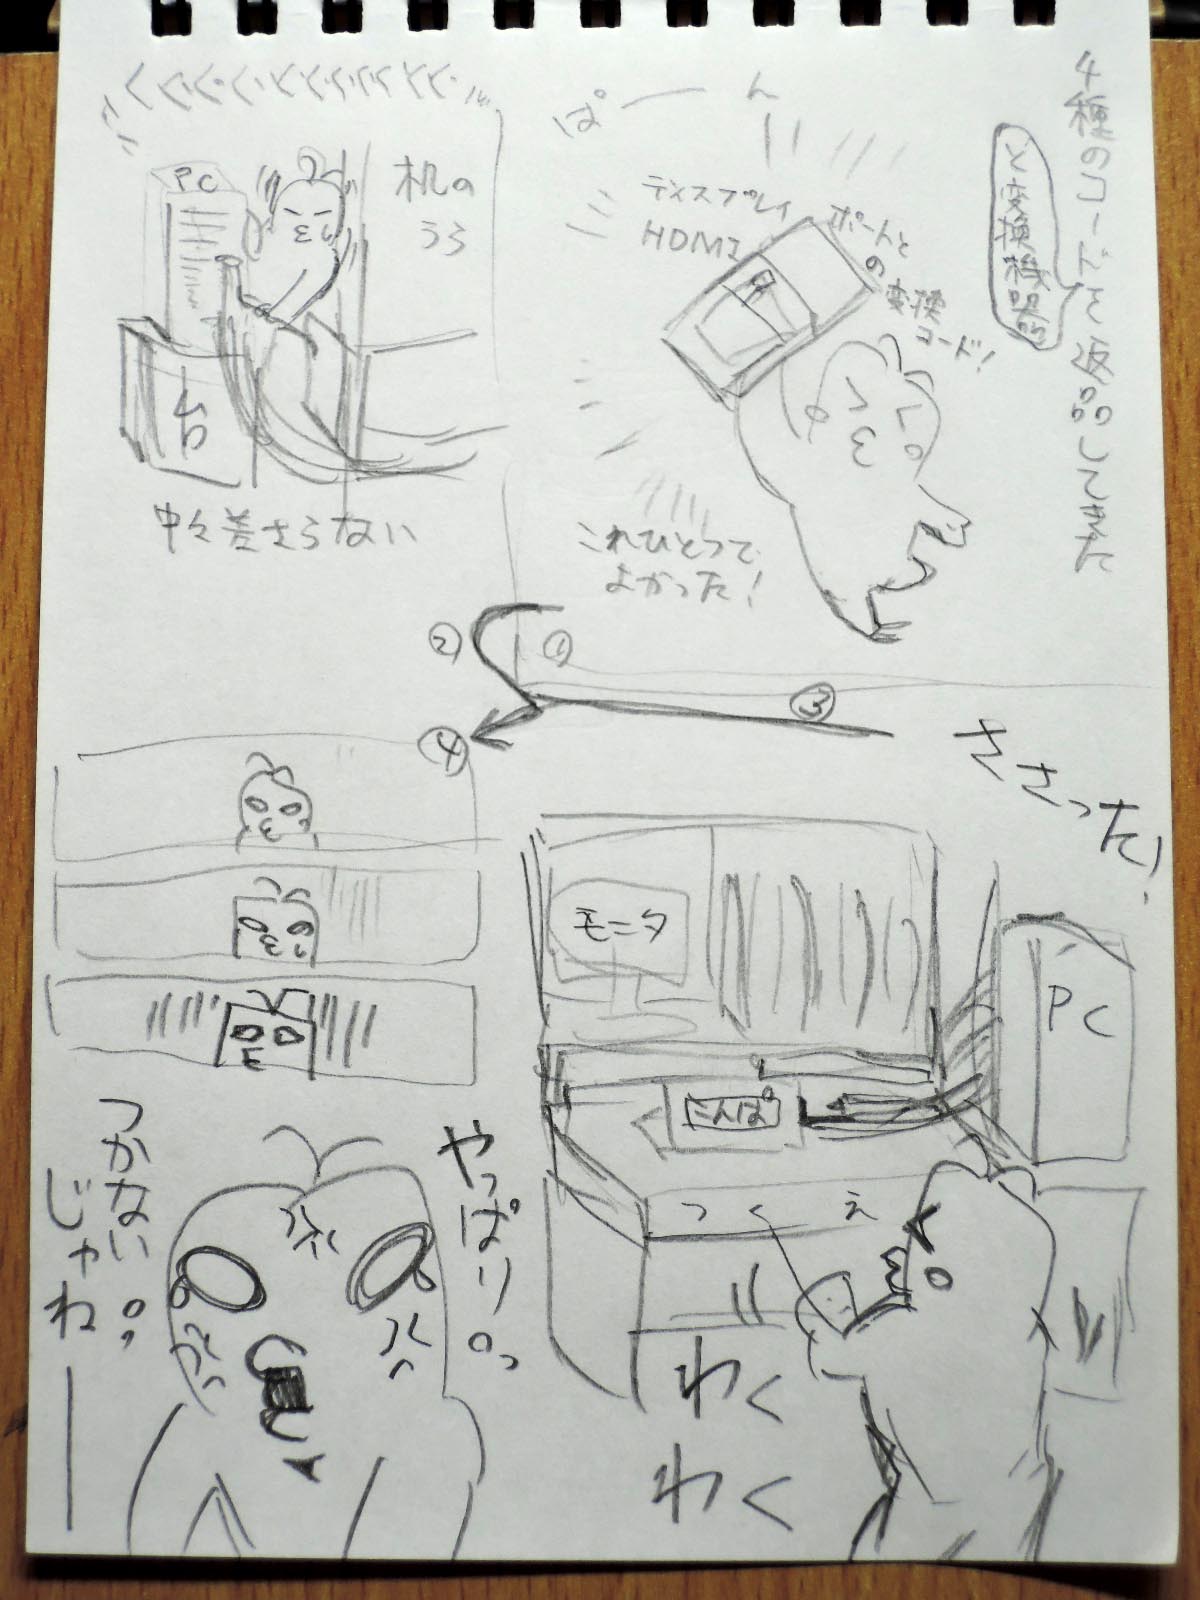 4種のコードを返品してきた
と変換機器
ぱーん
ディスプレイ
ポートと
HDMI
の
変換
コード!
これひとつで
よかった!
くくくくくくくくくく
机の
うら
PC
台
中々差さらない
①
②
③
④
ささった!
モニタ
PC
こんぱ
つくえ
わく
わく
やっぱりっ
つかない
じゃねー